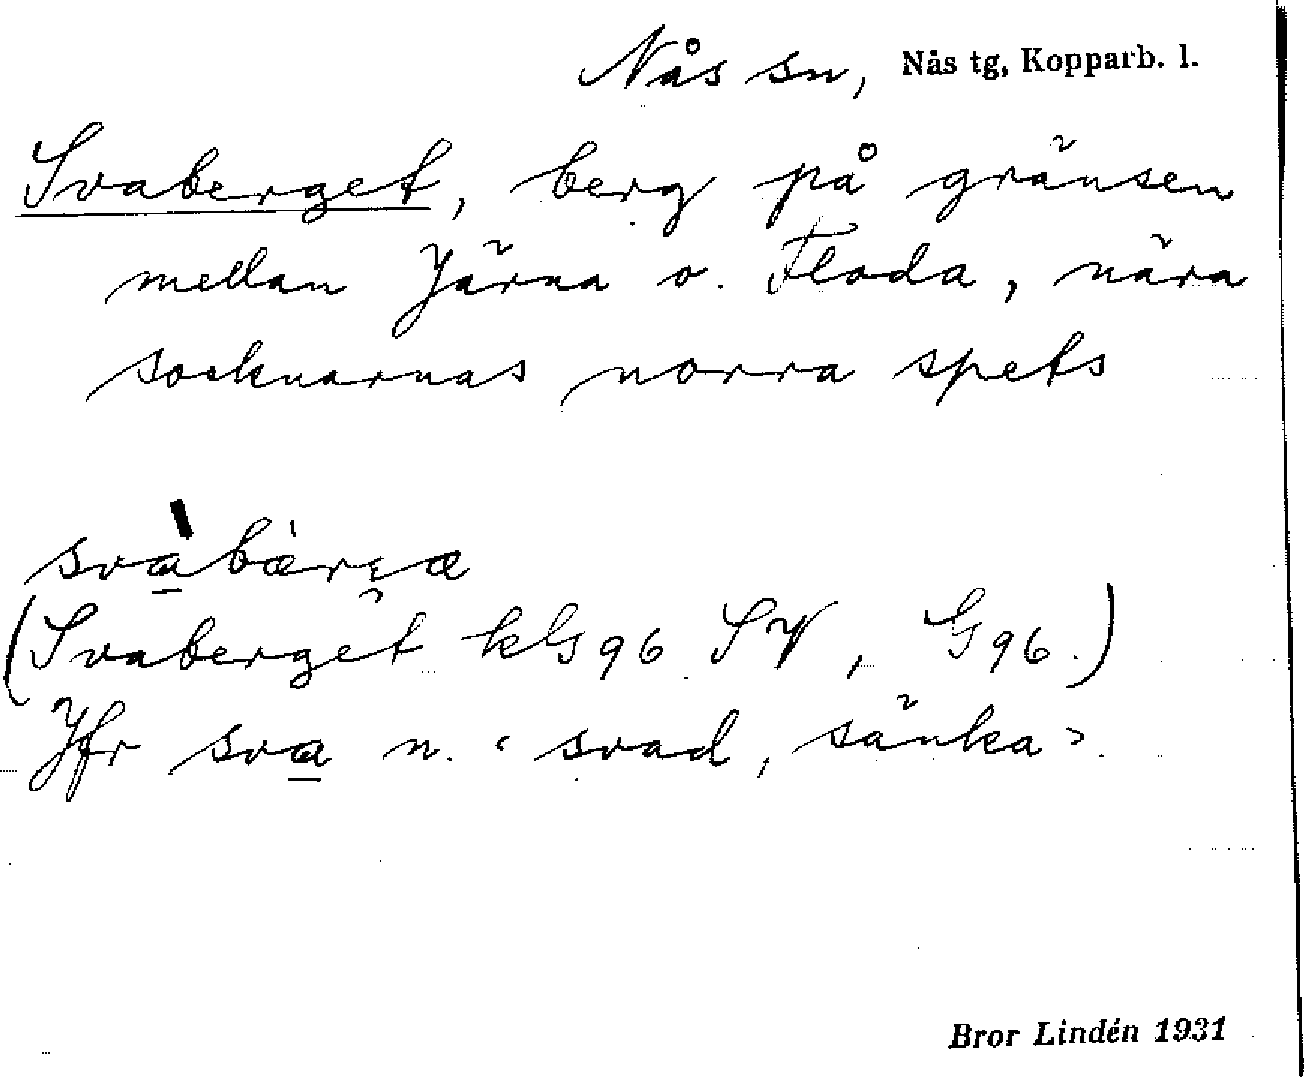 Nås sn, Nås tg, Kopparb. l.
Svaberget, berg på gränsen
mellan Järna o. Floda, nära
socknarnas norra spets
(Svaberget kG96 SV, G96.)
Jfr sva n. ‹ svad, sänka ›.
Bror Lindén 1931